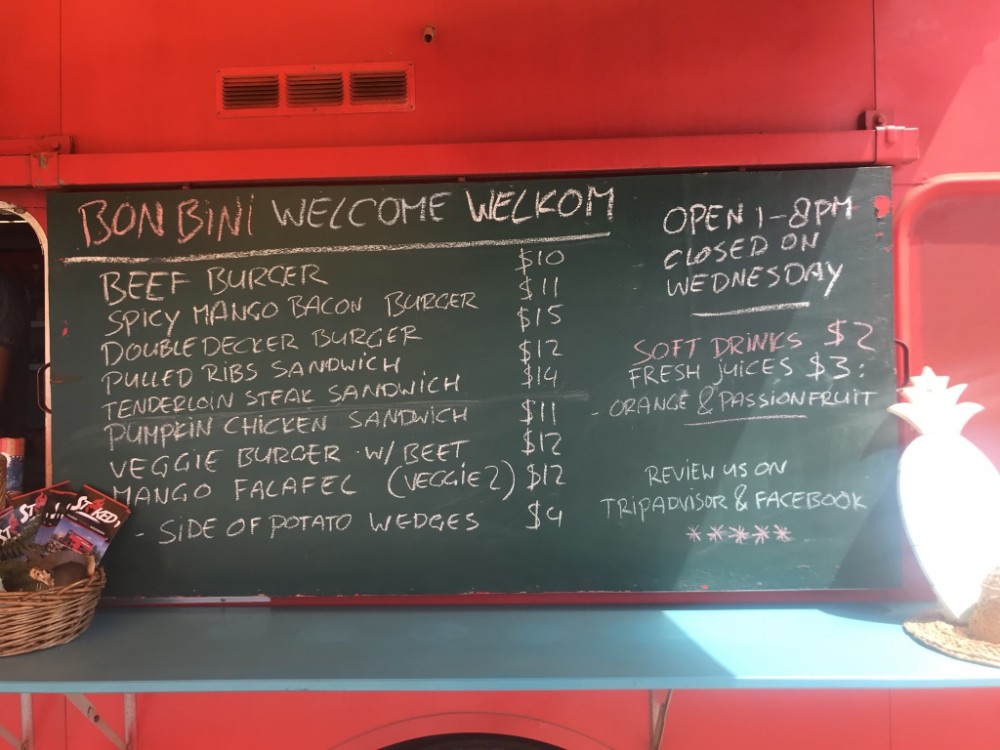 BON BiNi WELCOME WELKOM
BEEF BURGER $10
SPICY MANGO BACON BURGER $11
DOUBLE DECKER BURGER $15
PULLED RIBS SANDWiCH $12
TENDERLOIN STEAK SANDWiCH $14
PUMPKIN CHICKEN SANDWiCH $11
VEGGIE BURGER W/ BEET $12
MANGO FALAFEL (VEGGIE 2) $12
- SIDE OF POTATO WEDGES $4
OPEN 1-8PM
CLOSED ON
WEDNESDAY
SOFT DRINKS $2
FRESH JUICES $3:
- ORANGE & PASSIONFRUIT
REVIEW US ON
TRIPADVISOR & FACEBOOK
*****